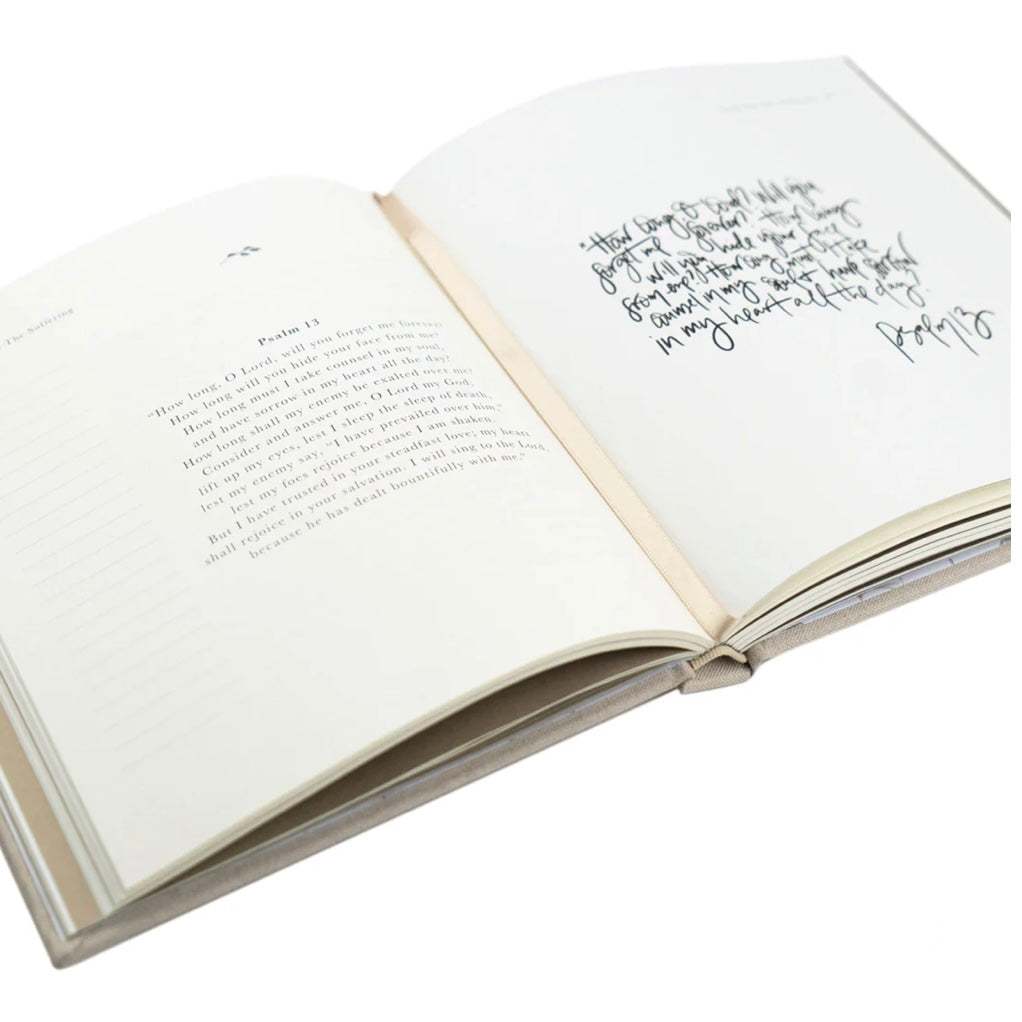 The Suffering
Psalm 13
"How long, O Lord, will you forget me forever
How long will you hide your face from me?
How long must I take counsel in my soul,
and have sorrow in my heart all the day?
How long shall my enemy be exalted over me?
Consider and answer me, O Lord my God;
lift up my eyes, lest I sleep the sleep of death,
lest my enemy say, "I have prevailed over him,"
lest my foes rejoice because I am shaken.
But I have trusted in your steadfast love; my heart
shall rejoice in your salvation. I will sing to the Lord,
because he has dealt bountifully with me."
"How long O Lord? Will you
forget me forever? How long
will you hide your face
from me? How long must I take
counsel in my soul & have sorrow
in my heart all the day?
Psalm 13